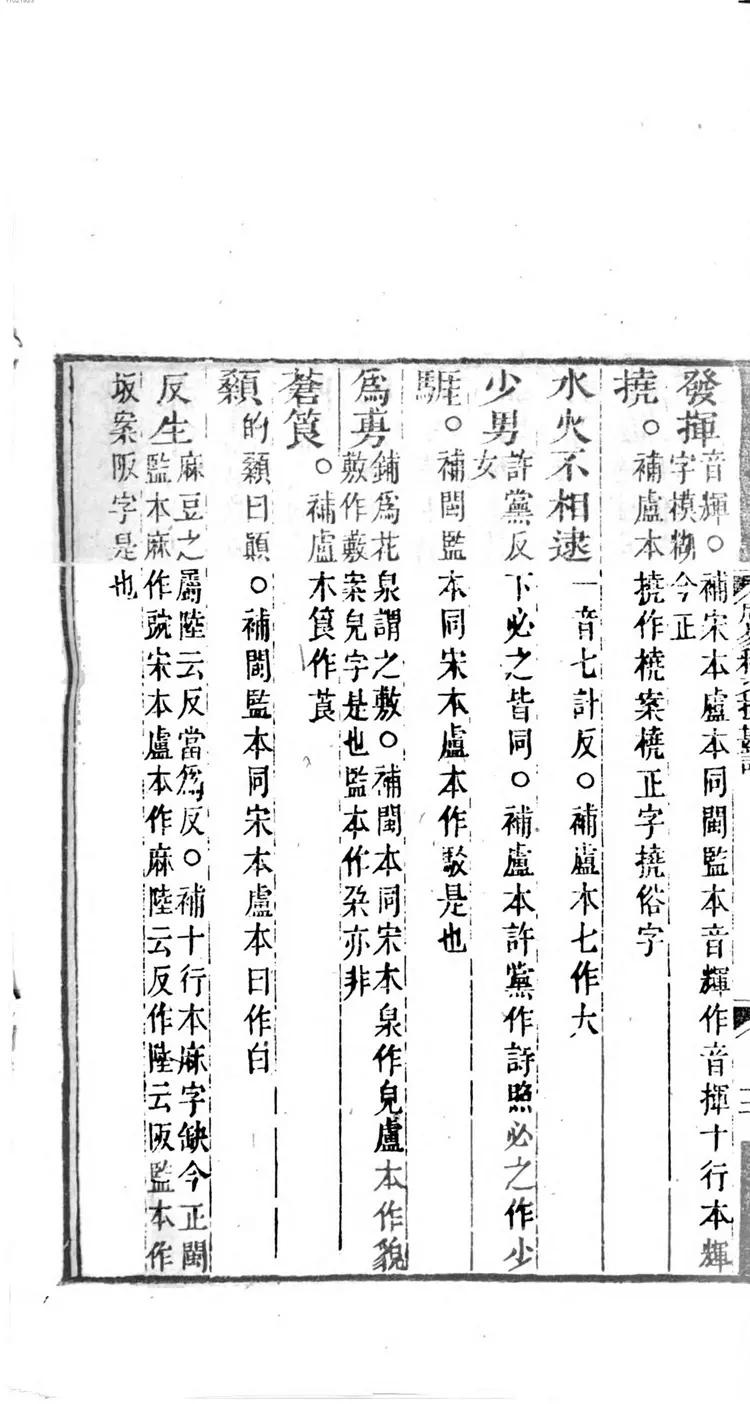 發揮音輝○補宋本盧本同閩監本音輝作音揮十行本輝
字模糊今正
撓○補盧本撓作橈案橈正字撓俗字
水火不相逮一音七計反○補盧本七作大
少男許黨反下必之皆同○補盧本許黨作詩照必之作少
女
駓○補閩監本同宋本盧本作駁是也
為旉鋪為花泉謂之敷○補閩本同宋本泉作皃盧本作貌
敷作藪案皃字是也監本作朶亦非
蒼筤○補盧本筤作莨
顙的顙曰顛○補閩監本同宋本盧本曰作白
反生麻豆之屬陸云反當為反○補十行本麻字缺今正閩
監本麻作豌宋本盧本作麻陸云反作陸云阪監本作
坂案阪字是也